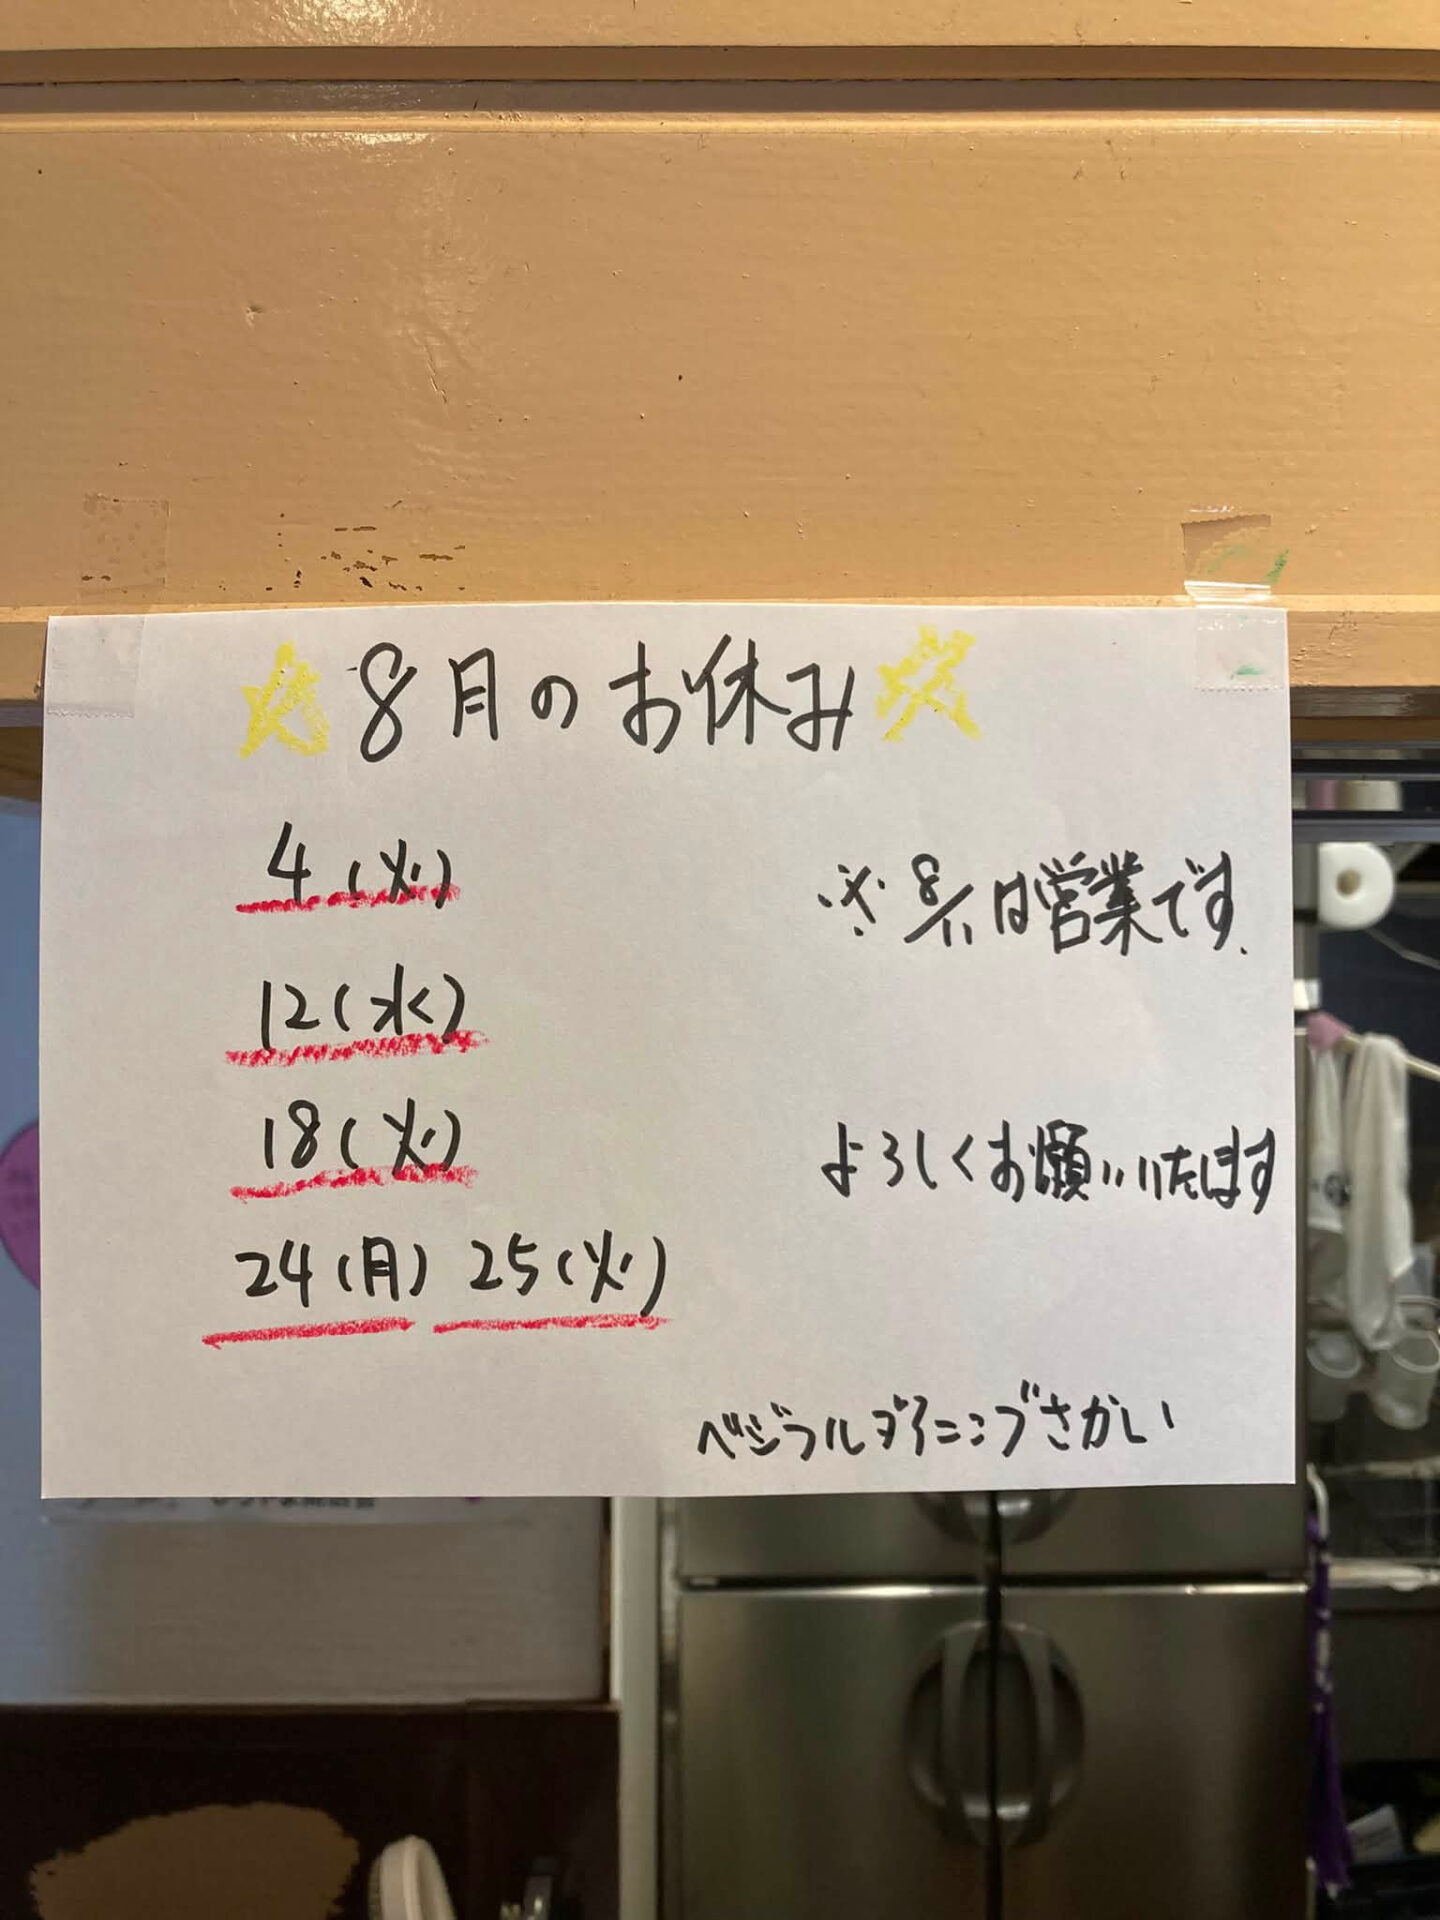 8月のお休み
4(火)
※8/11は営業です
12(水)
18(火)
よろしくお願いいたします
24(月) 25(火)
ベジラルダイニングさかい